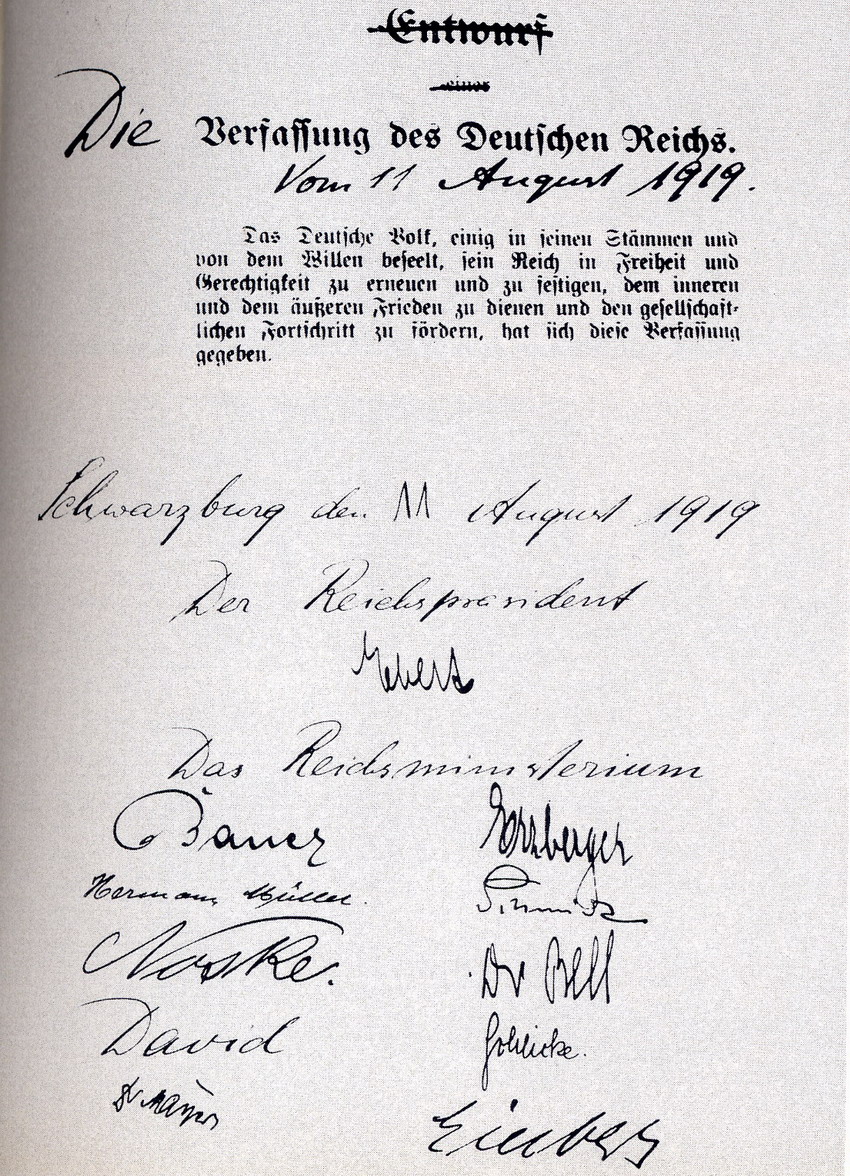 Entwurf
einer
Die Verfassung des Deutschen Reichs.
Vom 11 August 1919.
Das Deutsche Volk, einig in seinen Stämmen und
von dem Willen beseelt, sein Reich in Freiheit und
Gerechtigkeit zu erneuen und zu festigen, dem inneren
und dem äußeren Frieden zu dienen und den gesellschaft-
lichen Fortschritt zu fördern, hat sich diese Verfassung
gegeben.
Schwarzburg den 11 August 1919
Der Reichspräsident
Ebert
Das Reichsministerium
Bauer Erzberger
Hermann Müller. Schmidt
Noske. Dr Bell
David
Dr Mayer